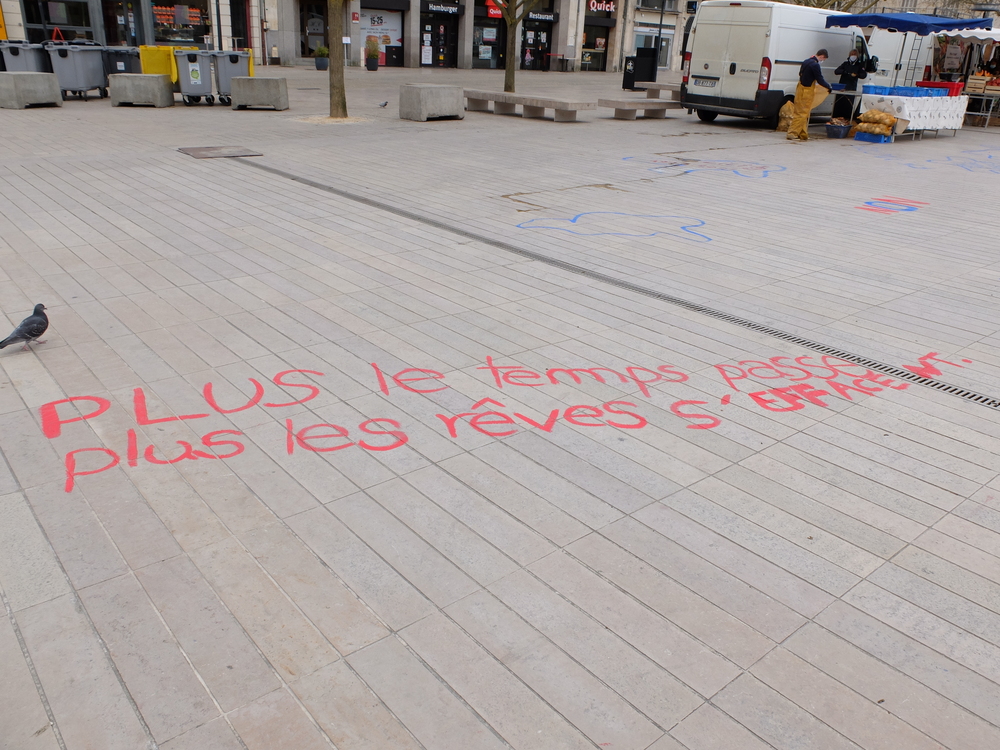 Hamburger
Restaurant
Quick
15-25
NON
PLUS le temps passe
plus les rêves s'EFFACENT.